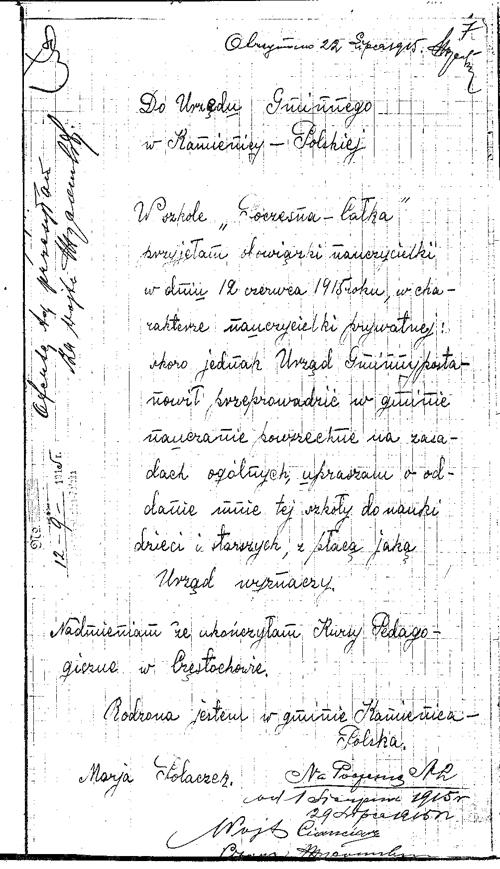 22 Lipca 1915.
7.
Do Urzędu Gminnego
w Kamienicy – Polskiej
W szkole „Poczesna – Łatka"
przyjęłam obowiązki nauczycielki
w dniu 12 czerwca 1915 roku, w cha-
rakterze nauczycielki prywatnej:
skoro jednak Urząd Gminny posta-
nowił przeprowadzić w gminie
nauczanie powszechne na zasa-
dach ogólnych, upraszam o od-
danie mnie tej szkoły do nauki
dzieci i starszych, z płacą jaką
Urząd wyznaczy.
Nadmieniam że ukończyłam Kursy Pedago-
giczne w Częstochowie.
Rodzona jestem w gminie Kamienica –
Polska.
Marja Połaczek.
od 1 Sierpnia 1915 r
29 Lipca 1915 r
Wójt
Ofertę tę przesyłam
12 – 9 – 1915 r.